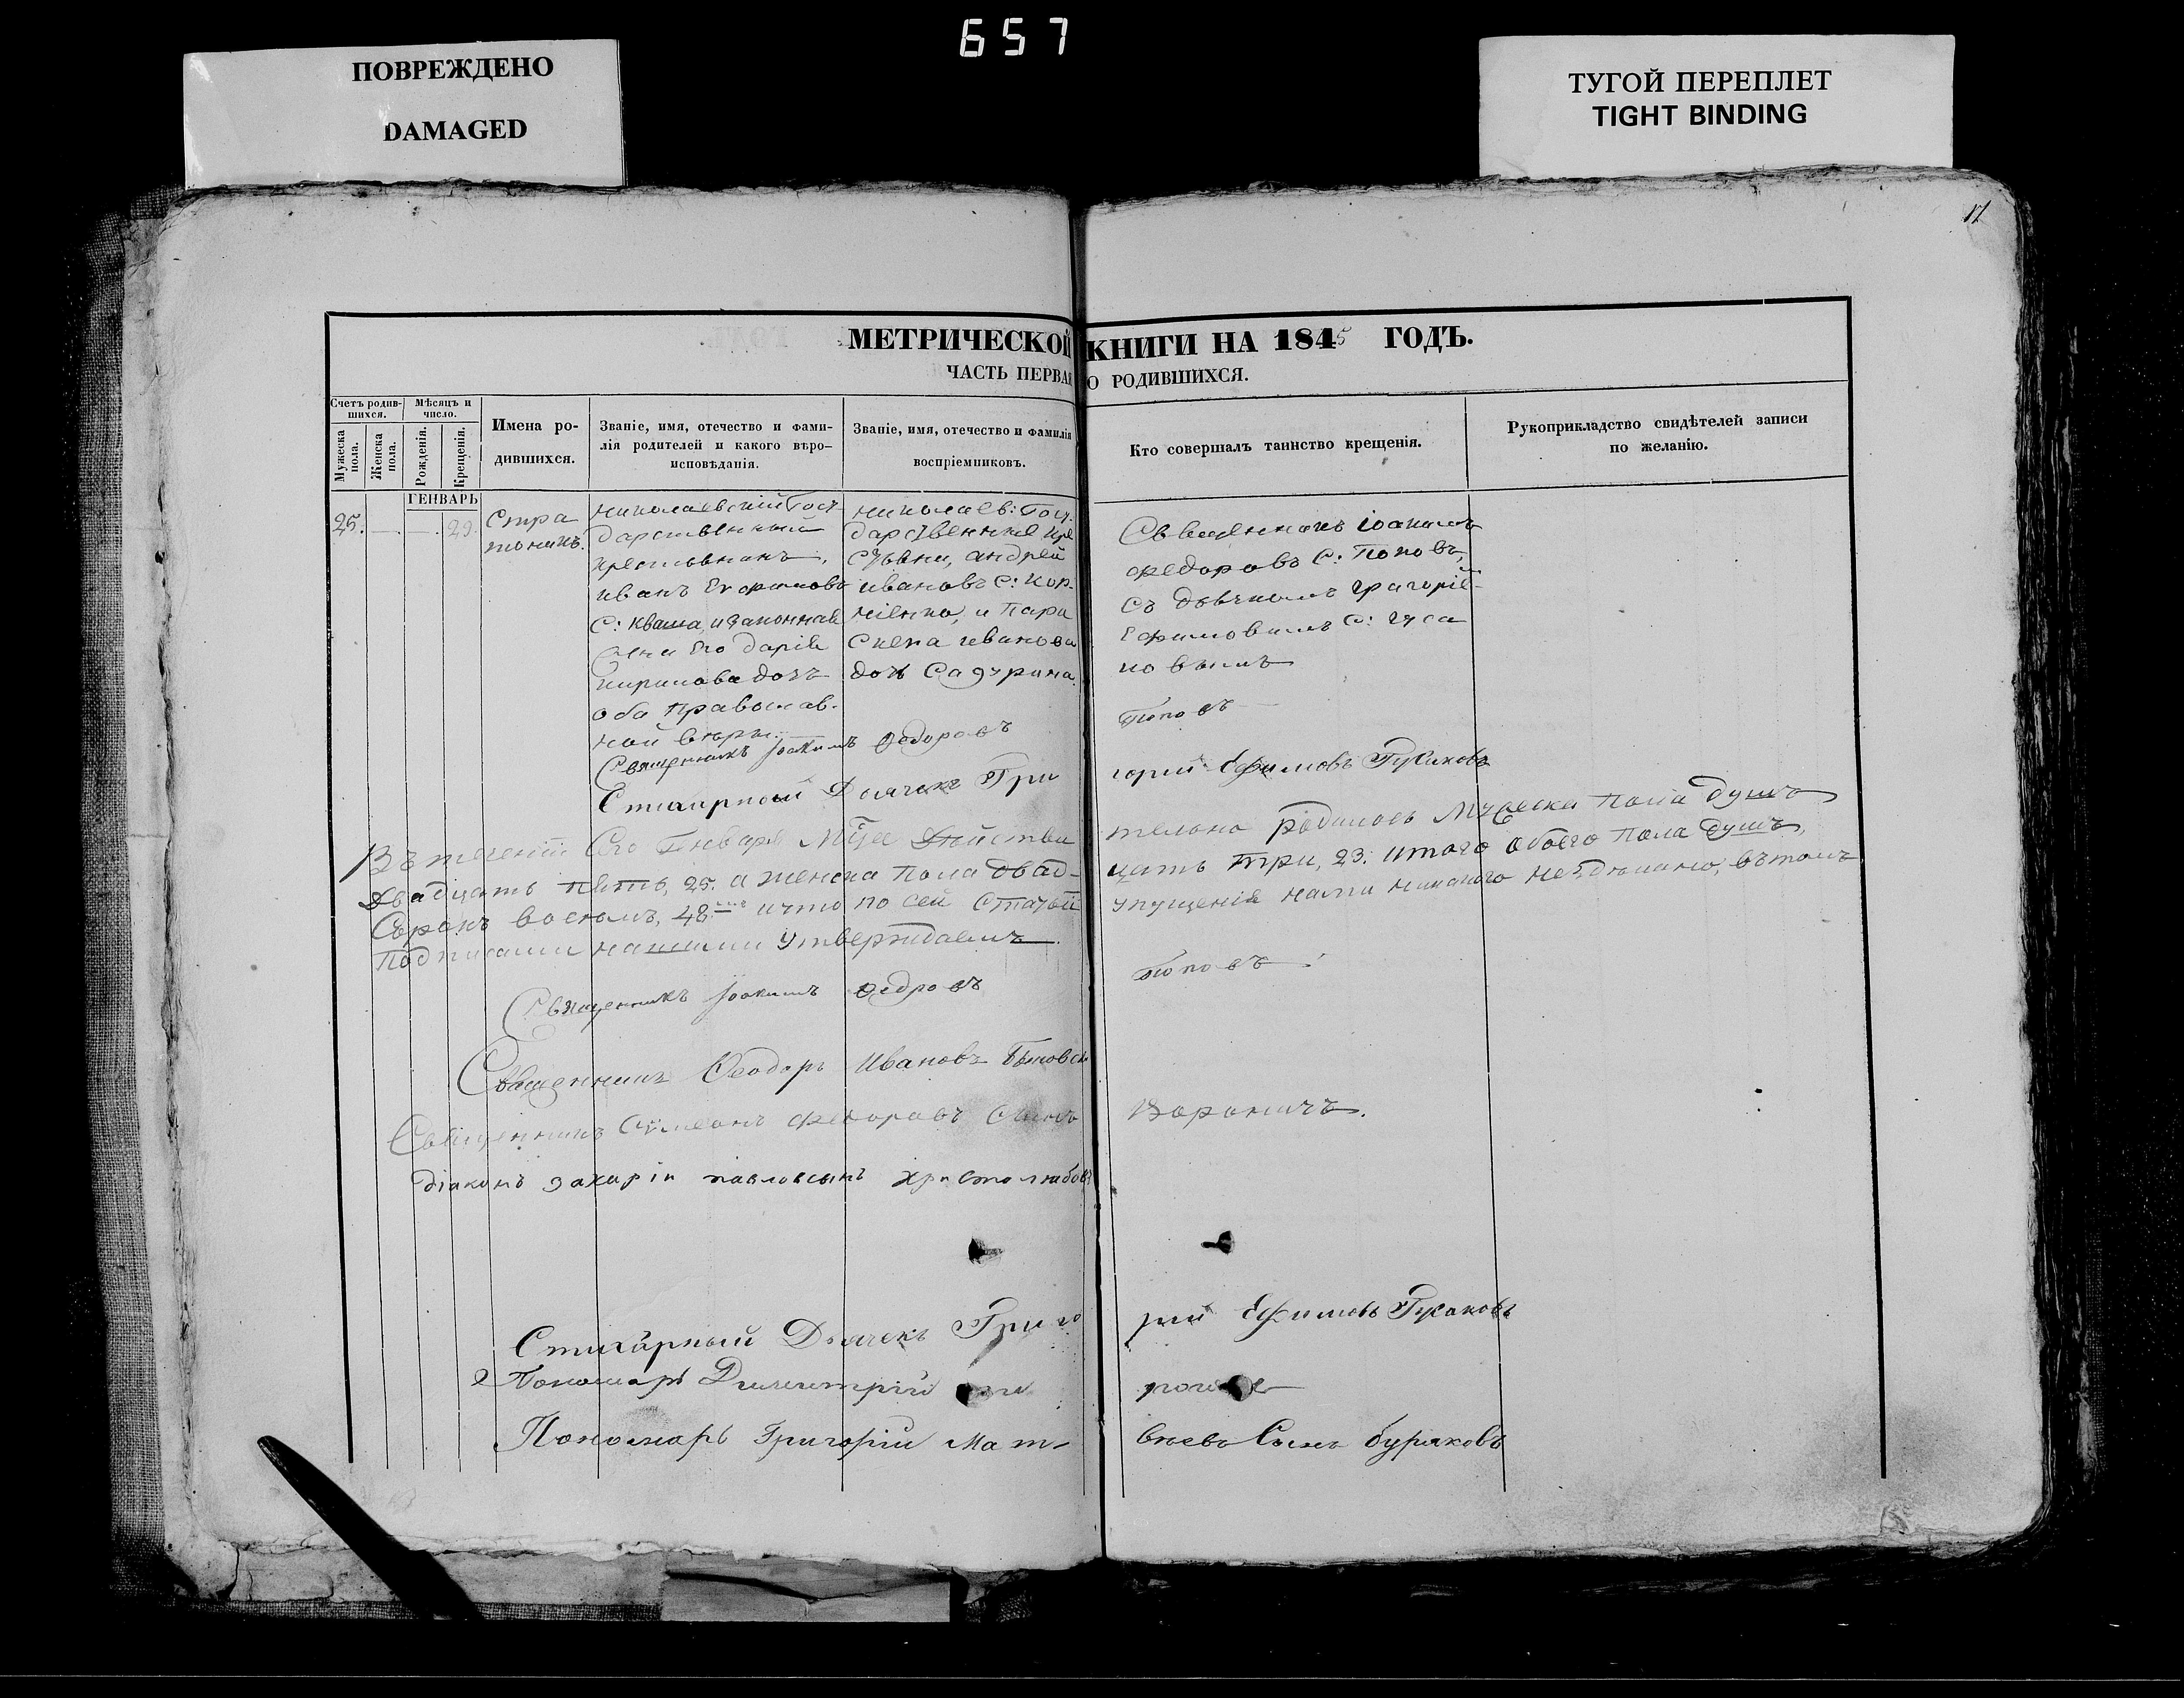 657
ПОВРЕЖДЕНО
DAMAGED
ТУГОЙ ПЕРЕПЛЕТ
TIGHT BINDING
МЕТРИЧЕСКОЙ КНИГИ НА 1845 ГОДЪ.
ЧАСТЬ ПЕРВАЯ О РОДИВШИХСЯ.
Счетъ родив-
шихся.
Мужеска пола.
Женска пола.
Мѣсяцъ и
число.
Рожденія.
Крещенія.
Имена ро-
дившихся.
Званіе, имя, отечество и фами-
лія родителей и какого вѣро-
исповѣданія.
Званіе, имя, отечество и фамилія
воспріемниковъ.
Кто совершалъ таинство крещенія.
Рукоприкладство свидѣтелей записи
по желанію.
ГЕНВАРЬ
25. 29.
Стра
тоникъ.
николаевскій Госу
дарственный
крестьянинъ,
иванъ
С: кваша, и законная
жена Его дарія
кирилова дочь
оба Православ.
ной вѣры.
николаев: Госу.
дарственные кре
стьяни, андрей
ивановъ С: Кор-
ніенко, и Пара
скева иванова
доч
Священникъ іоакимъ
федоровъ С: Поповъ,
съ дьячкомъ григоріе-
Ефимовымъ С: Гуса
ковымъ
Священникъ Іоакимъ Федоровъ Поповъ
Стихарный Дьячекъ Григорий Ефимовъ Гусаковъ
Въ теченіи Сего Генваря Мца дѣйствительно родилось Мужеска пола душъ
двадцать пять, 25. а женска пола двад-цать три, 23. итого обоего пола душъ,
Сорокъ восемь, 48. и что по сей Статьи упущенія нами никакого не здѣлано, въ томъ
Подписами нашими утверждаемъ.
Священникъ Іоакимъ Федровъ Поповъ
Священникъ Феодоръ Ивановъ
Священникъ Сумеонъ Федоровъ Сынъ Вороничъ.
діаконъ захарій павловъ сынъ христолюбовъ
Стихарный Дьячекъ Григорий Ефимовъ Гусаковъ
Пономарь Димитрій
Пономарь Григорій Мат-вѣевъ Сынъ буряковъ